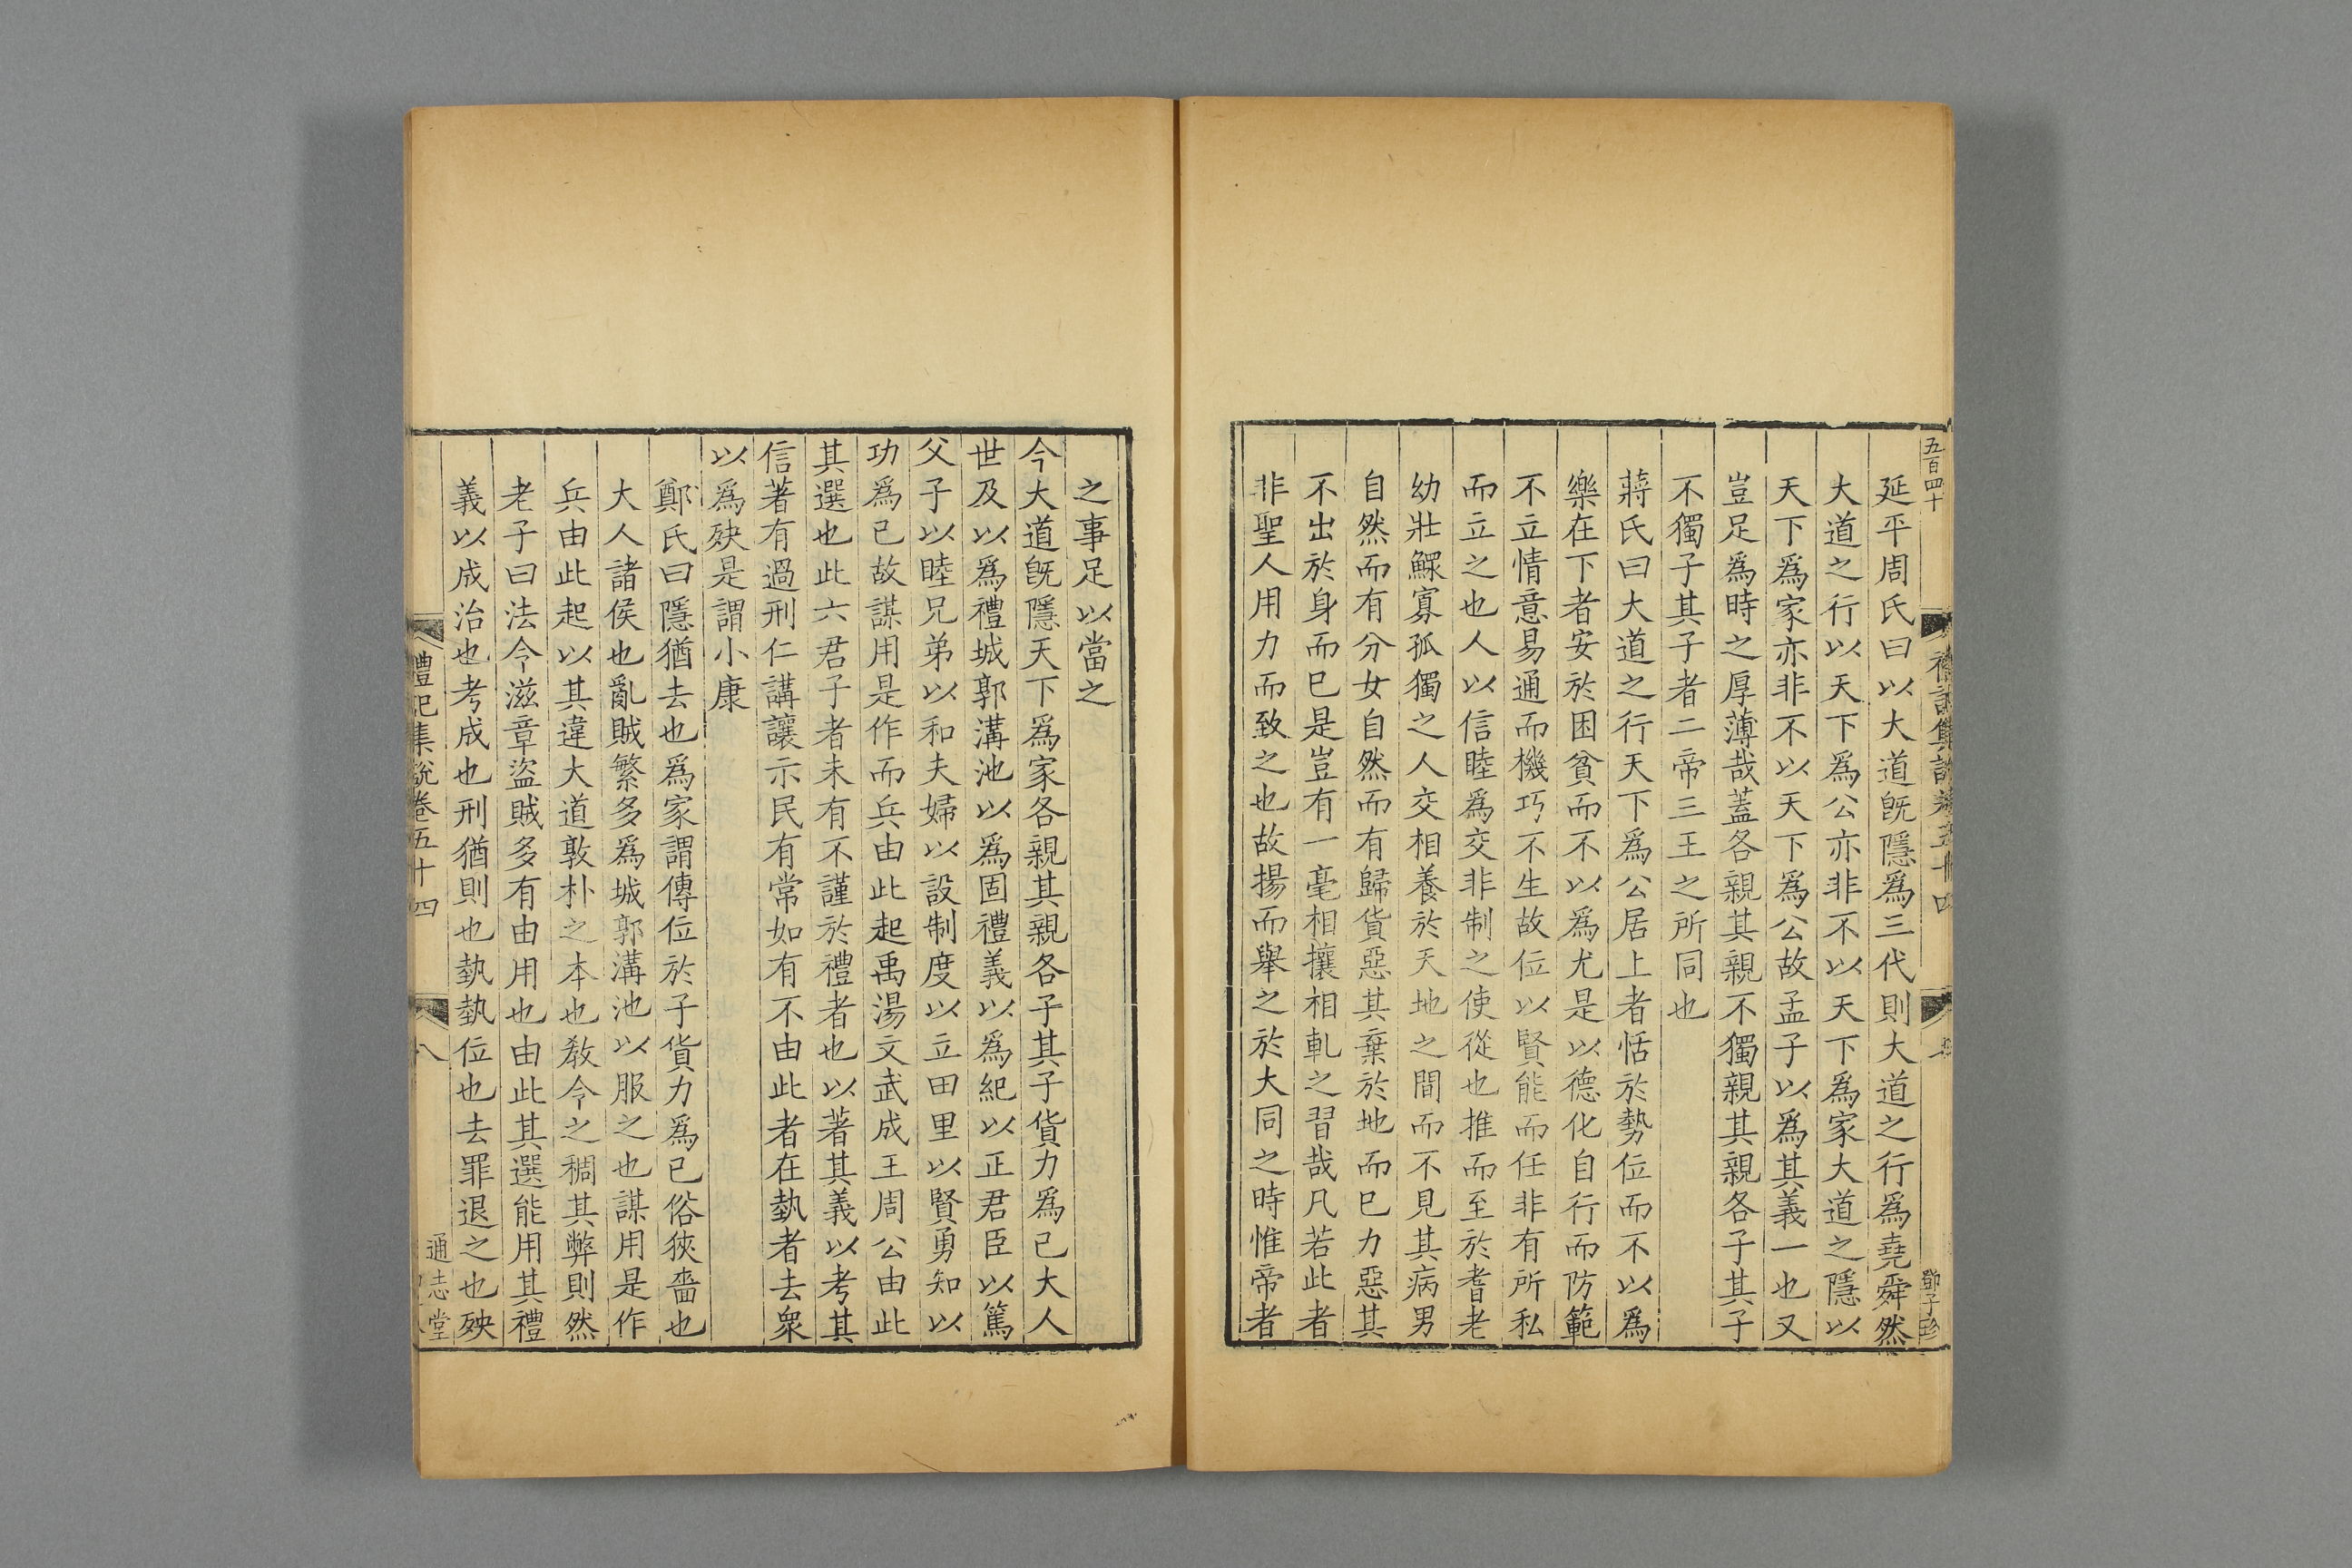 五百四十
延平周氏曰以大道旣隱爲三代則大道之行爲堯舜然
大道之行以天下爲公亦非不以天下爲家大道之隱以
天下爲家亦非不以天下爲公故孟子以爲其義一也又
豈足爲時之厚薄哉蓋各親其親不獨親其親各子其子
不獨子其子者二帝三王之所同也
蔣氏曰大道之行天下爲公居上者恬於勢位而不以爲
樂在下者安於困貧而不以爲尤是以德化自行而防範
不立情意易通而機巧不生故位以賢能而任非有所私
而立之也人以信睦爲交非制之使從也推而至於耆老
幼壯鰥寡孤獨之人交相養於天地之間而不見其病男
自然而有分女自然而有歸貨惡其棄於地而巳力惡其
不出於身而巳是豈有一毫相攘相軋之習哉凡若此者
非聖人用力而致之也故揚而舉之於大同之時惟帝者
之事足以當之
今大道旣隱天下爲家各親其親各子其子貨力爲己大人
世及以爲禮城郭溝池以爲固禮義以爲紀以正君臣以篤
父子以睦兄弟以和夫婦以設制度以立田里以賢勇知以
功爲己故謀用是作而兵由此起禹湯文武成王周公由此
其選也此六君子者未有不謹於禮者也以著其義以考其
信著有過刑仁講讓示民有常如有不由此者在埶者去衆
以爲殃是謂小康
鄭氏曰隱猶去也爲家謂傳位於子貨力爲已俗狹嗇也
大人諸侯也亂賊繁多爲城郭溝池以服之也謀用是作
兵由此起以其違大道敦朴之本也敎令之稠其弊則然
老子曰法令滋章盜賊多有由用也由此其選能用其禮
義以成治也考成也刑猶則也埶埶位也去罪退之也殃
禮記集說卷五十四
八
通志堂